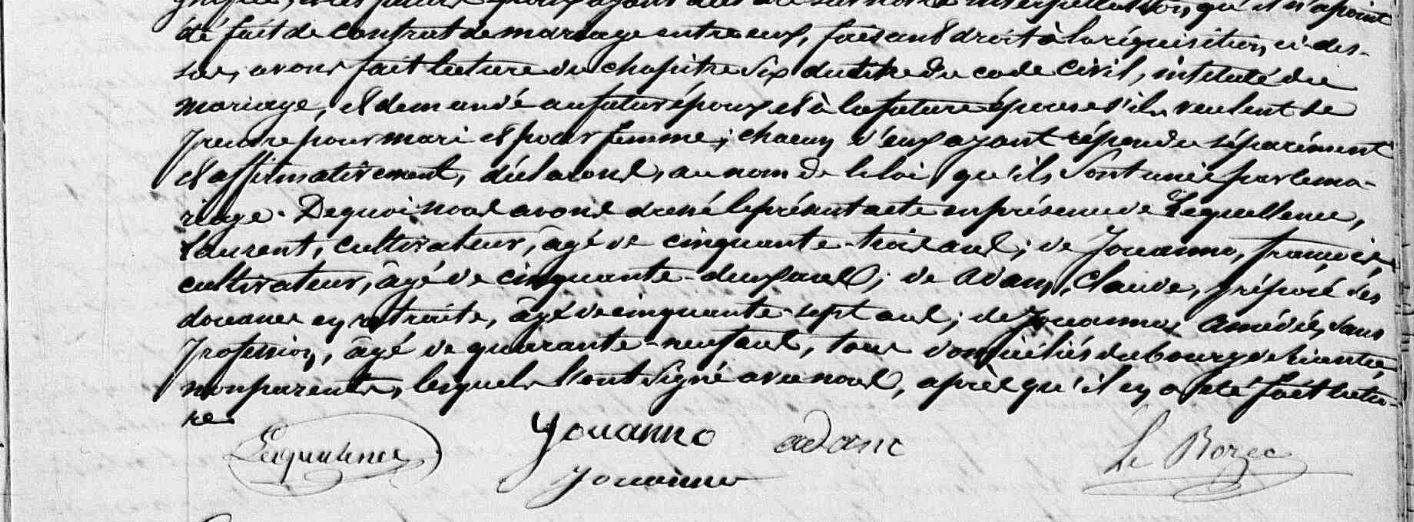 été fait de contrat de mariage entre eux, faisant droit à la réquisition ci-des-
sus, avons fait lecture du chapitre six du titre du code civil, intitulé du
mariage, et demandé au futur époux et à la future épouse s'ils veulent se
prendre pour mari et pour femme; chacun d'eux ayant répondu séparément
et affirmativement, déclarons, au nom de la loi, qu'ils sont unis par le ma-
riage. De quoi nous avons dressé le présent acte en présence de Lequellenec,
Laurent, cultivateur, âgé de cinquante-trois ans; de Jouanno, françois,
cultivateur, âgé de cinquante-deux ans; de Adam, Claude, préposé des
douanes en retraite, âgé de cinquante-sept ans; de Jouanno, Amédée, sans
profession, âgé de quarante-neuf ans, tous domiciliés du bourg de
non parents, lesquels l'ont signé avec nous, après qu'il en a été fait lectu-
re
Jouanno adam Le Borzec
Jouanno